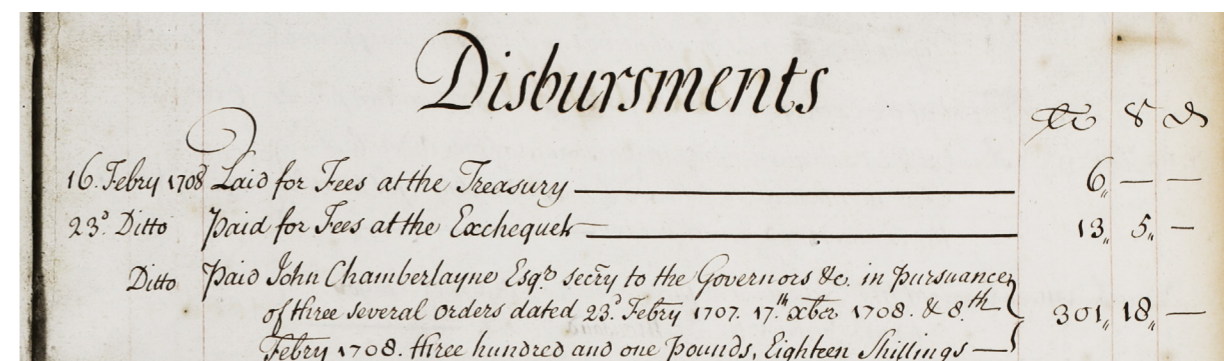 Disbursments
£ S d
16. Febry 1708 Paid for Fees at the Treasury 6,, — —
23.d Ditto Paid for Fees at the Exchequer 13,, 5,, —
Ditto Paid John Chamberlayne Esqr. secry to the Governors &c. in pursuance
of three several orders dated 23.d Febry 1707. 17.th xber 1708. & 8.th 301,, 18,, —
Febry 1708. three hundred and one pounds, Eighteen Shillings —